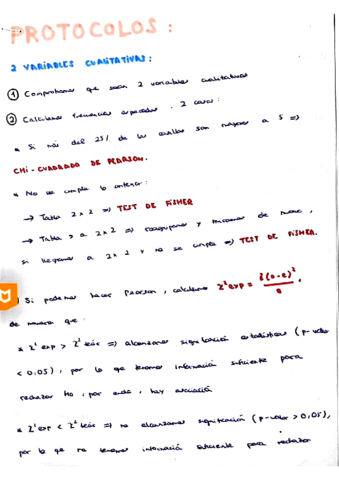 PROTOCOLOS:
2 VARIABLES CUALITATIVAS:
① Comprobamos que sean 2 variables cualitativas
② Calculamos frecuencias esperadas. 2 casos:
* Si más del 25% de las casillas son mayores a 5 =>
CHI-CUADRADO DE PEARSON.
* No se cumple lo anterior:
→ Tabla 2x2 => TEST DE FISHER
→ Tabla > a 2x2 => reagrupamos y miramos de nuevo,
si llegamos a 2x2 y no se cumple => TEST DE FISHER.
Si podemos hacer Pearson, calculamos Σ² exp = Σ(o-e)² / e,
de manera que:
* Σ² exp > Σ² teór => alcanzamos significación estadística (p-valor
< 0,05), por lo que tenemos información suficiente para
rechazar Ho, por ende, hay asociación
* Σ² exp < Σ² teór => no alcanzamos significación (p-valor > 0,05),
por lo que no tenemos información suficiente para rechazar